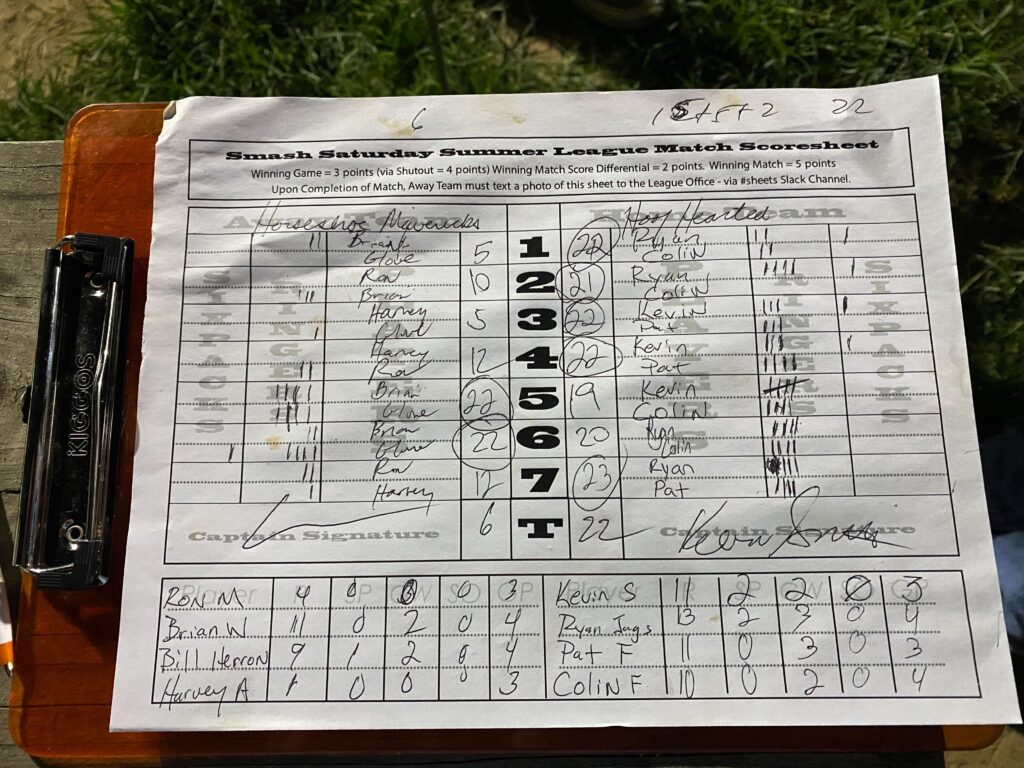 6 15+5+2 22
Smash Saturday Summer League Match Scoresheet
Winning Game = 3 points (via Shutout = 4 points) Winning Match Score Differential = 2 points. Winning Match = 5 points
Upon Completion of Match, Away Team must text a photo of this sheet to the League Office - via #sheets Slack Channel.
Horseshoe Mavericks Hoof Hearted
Team
Brian 5 1 22 Ryan
Glove Colin
Ron 10 2 21 Ryan
Brian Colin
Harvey 5 3 22 Kevin
Glove Pat
Harvey 12 4 22 Kevin
Ron Pat
Brian 22 5 19 Kevin
Glove Colin
Brian 22 6 20 Ryan
Glove Colin
Ron 12 7 23 Ryan
Harvey Pat
Captain Signature 6 T 22 Captain Signature
Player R SP GW SO GP Player R SP GW SO GP
Ron M 4 0 0 0 3 Kevin S 11 2 2 0 3
Brian W 11 0 2 0 4 Ryan Jags 13 2 3 0 4
Bill Herron 9 1 2 0 4 Pat F 11 0 3 0 3
Harvey A 1 0 0 0 3 Colin F 10 0 2 0 4
KIGGOS
SIXPACKS
RINGERS
PLAYERS
RINGERS
SIXPACKS